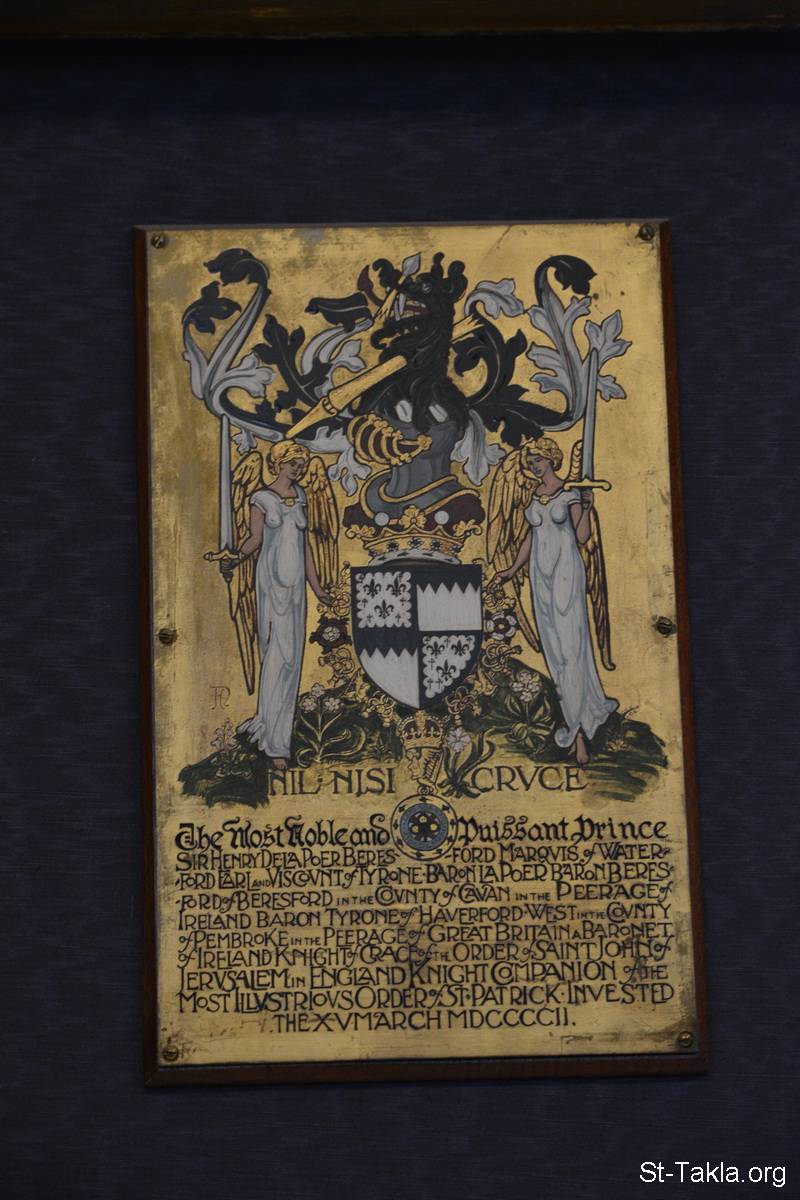 NIL · NISI CRVCE
The Most Noble and Puissant Prince
SIR HENRY DE LA POER BERES-FORD MARQVIS of WATER-
-FORD EARL AND VISCOVNT of TYRONE BARON LA POER BARON BERES-
-FORD of BERESFORD IN THE COVNTY of CAVAN IN THE PEERAGE of
IRELAND BARON TYRONE of HAVERFORD·WEST IN THE COVNTY
of PEMBROKE IN THE PEERAGE of GREAT BRITAIN A BARONET
of IRELAND KNIGHT of GRACE of THE ORDER of SAINT JOHN of
JERVSALEM IN ENGLAND KNIGHT COMPANION of THE
MOST ILLVSTRIOVS ORDER of ST·PATRICK·INVESTED
THE XV MARCH MDCCCCII.
St-Takla.org